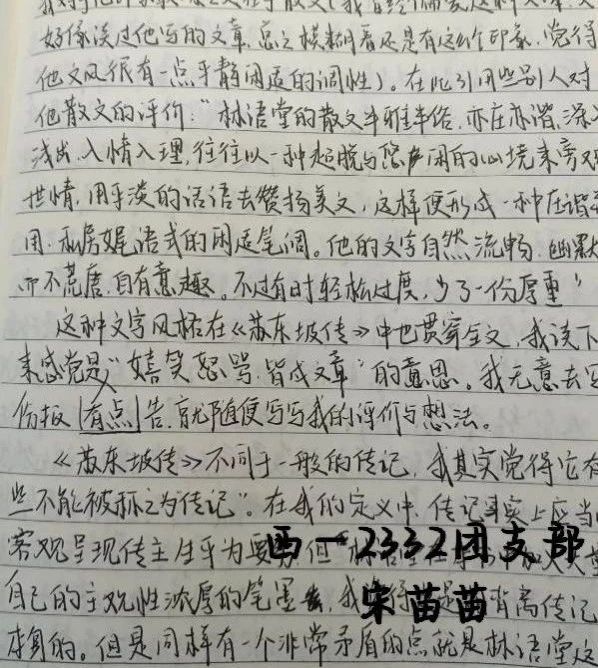 好像读过他写的文章,总之模糊看还是有这个印象,觉得
他文风很有一点平静闲适的调性)。在此引用些别人对
他散文的评价:“林语堂的散文半雅半俗,亦庄亦谐,深入
浅出,入情入理,往往以一种超脱与悠闲的心境来旁观
世情,用平淡的话语去赞扬美文,这样便形成一种庄谐
用、私房娓语式的闲适笔调。他的文字自然流畅,幽默
而不荒唐,自有意趣。不过有时轻松过度,少了一份厚重”
这种文字风格在《苏东坡传》中也贯穿全文,我读下
来感觉是“嬉笑怒骂,皆成文章”的意思。我无意去写
份报有点告,就随便写写我的评价与想法。
《苏东坡传》不同于一般的传记,我其实觉得它有
些不能被称之为“传记”。在我的定义中,传记事实上应当
客观呈现传主生平为要 但
西一2332团支部
自己的主观性浓厚的笔墨 我 是 背离传记
宋苗苗
本身的。但是同样有一个非常矛盾的点就是林语堂这